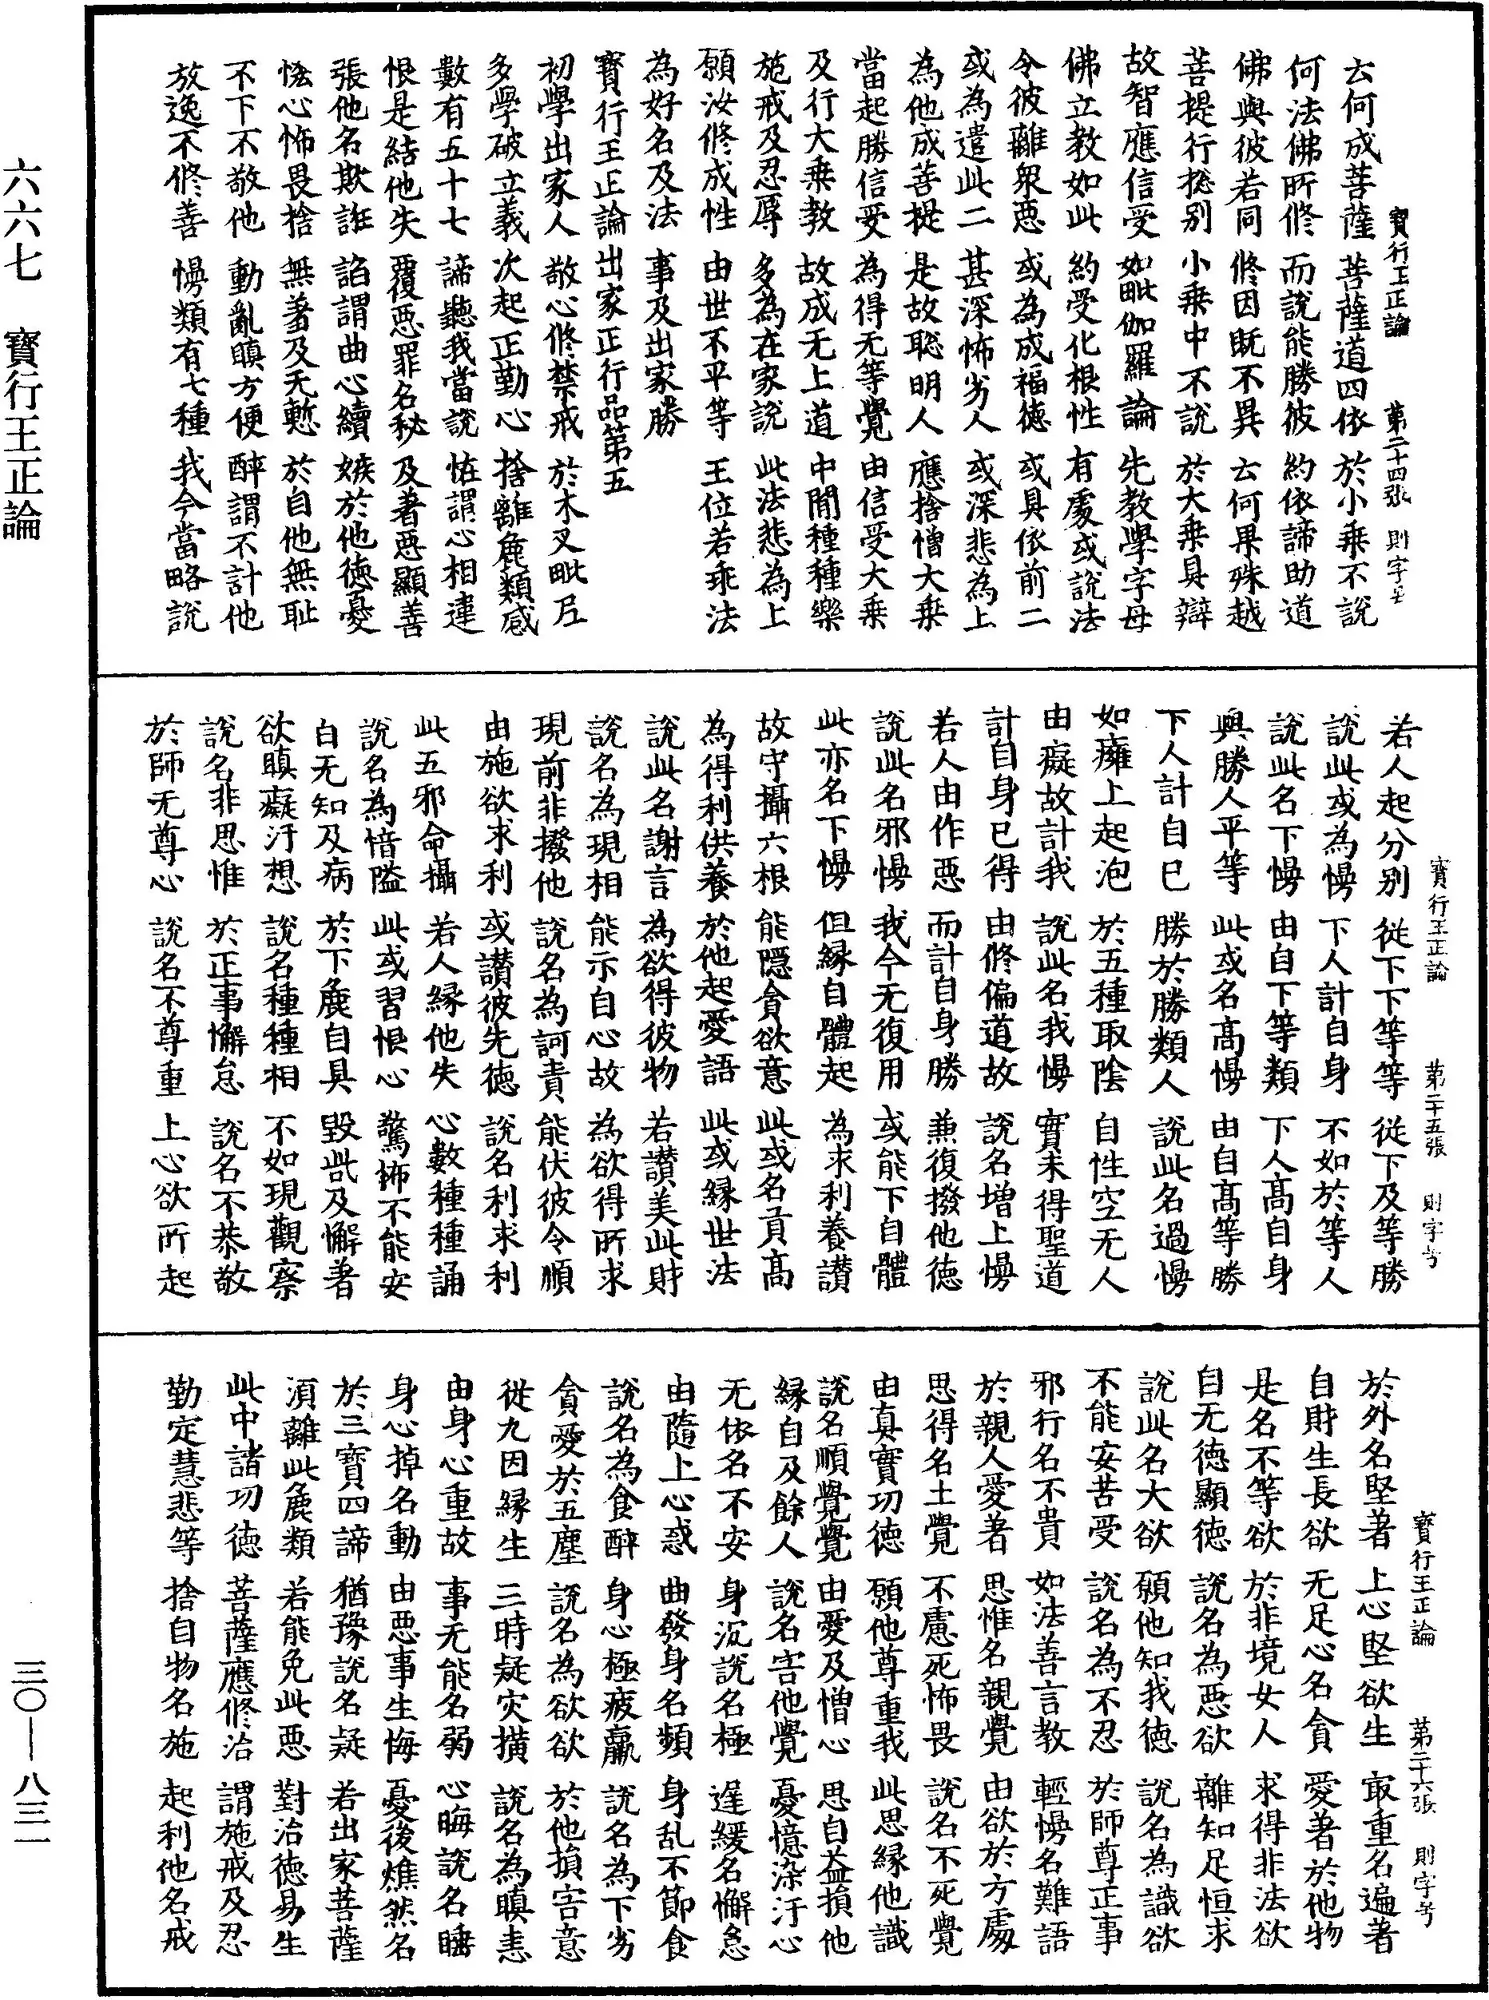 六六七　寶行王正論
三〇—八三一
寶行王正論　第二十四張　則字号
云何成菩薩　菩薩道四依　於小乘不說
何法佛所修　而說能勝彼　約依諦助道
佛與彼若同　修因既不異　云何果殊越
菩提行揔別　小乘中不說　於大乘具辯
故智應信受　如毗伽羅論　先教學字母
佛立教如此　約受化根性　有處或說法
令彼離衆惡　或為成福德　或具依前二
或為遣此二　甚深怖劣人　或深悲為上
為他成菩提　是故聡明人　應捨憎大乘
當起勝信受　為得无等覺　由信受大乘
及行大乘教　故成无上道　中間種種樂
施戒及忍辱　多為在家說　此法悲為上
願汝修成性　由世不平等　王位若乖法
為好名及法　事及出家勝
寶行王正論出家正行品第五
初學出家人　敬心修禁戒　於木叉毗尼
多學破立義　次起正勤心　捨離麁類惑
數有五十七　諦聽我當說　恠謂心相違
恨是結他失　覆惡罪名秘　及著惡顯善
張他名欺誑　諂謂曲心續　嫉於他德憂
恡心怖畏捨　無羞及无慙　於自他無恥
不下不敬他　動亂瞋方便　醉謂不計他
放逸不修善　慢類有七種　我今當略說
寶行王正論　第二十五張　則字号
若人起分別　從下下等等　從下及等勝
說此或為慢　下人計自身　不如於等人
說此名下慢　由自下等類　下人高自身
與勝人平等　此或名高慢　由自高等勝
下人計自己　勝於勝類人　說此名過慢
如癰上起泡　於五種取陰　自性空无人
由癡故計我　說此名我慢　實未得聖道
計自身已得　由修偏道故　說名增上慢
若人由作惡　而計自身勝　兼復撥他德
說此名邪慢　我今无復用　或能下自體
此亦名下慢　但緣自體起　為求利養讃
故守攝六根　能隱貪欲意　此或名貢高
為得利供養　於他起愛語　此或緣世法
說此名謝言　為欲得彼物　若讃美此財
說名為現相　能示自心故　為欲得所求
現前非撥他　說名為訶責　能伏彼令順
由施欲求利　或讃彼先德　說名利求利
此五邪命攝　若人緣他失　心數種種誦
說名為愔隘　此或習恨心　驚怖不能安
自无知及病　於下麁自具　毀呰及懈著
欲瞋癡汙想　說名種種相　不如現觀察
說名非思惟　於正事懈怠　說名不恭敬
於師无尊心　說名不尊重　上心欲所起
寶行王正論　第二十六張　則字号
於外名堅著　上心堅欲生　最重名遍著
自財生長欲　无足心名貪　愛著於他物
是名不等欲　於非境女人　求得非法欲
自无德顯德　說名為惡欲　離知足恒求
說此名大欲　願他知我德　說名為識欲
不能安苦受　說名為不忍　於師尊正事
邪行名不貴　如法善言教　輕慢名難語
於親人愛著　思惟名親覺　由欲於方處
思得名土覺　不慮死怖畏　說名不死覺
由真實功德　願他尊重我　此思緣他識
說名順覺覺　由愛及憎心　思自益損他
緣自及餘人　說名害他覺　憂憶染汙心
无依名不安　身沉說名極　遅緩名懈怠
由隨上心惑　曲發身名頻　身乱不節食
說名為食醉　身心極疲羸　說名為下劣
貪愛於五塵　說名為欲欲　於他損害意
從九因緣生　三時疑灾橫　說名為瞋恚
由身心重故　事无能名弱　心晦說名睡
身心掉名動　由惡事生悔　憂後燋然名
於三寶四諦　猶豫說名疑　若出家菩薩
湏離此麁類　若能免此惡　對治德易生
此中諸功德　菩薩應修治　謂施戒及忍
勤定慧悲等　捨自物名施　起利他名戒